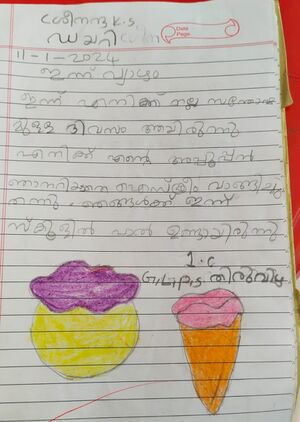 ശ്രീനന്ദ K.S.
ഡയറി
Date
Page
11-1-2024
ഇന്ന് വ്യാഴം
ഇന്ന് എനിക്ക് നല്ല സന്തോഷ
മുള്ള ദിവസം ആയിരുന്നു
എനിക്ക് എന്റെ അപ്പൂപ്പൻ
ഐസ്ക്രീം വാങ്ങിച്ചു
തന്നു. ഞങ്ങൾക്ക് ഇന്ന്
സ്കൂളിൽ പാൽ ഉണ്ടായിരുന്നു
1.C
G.L.P.S തിരുവിഴ